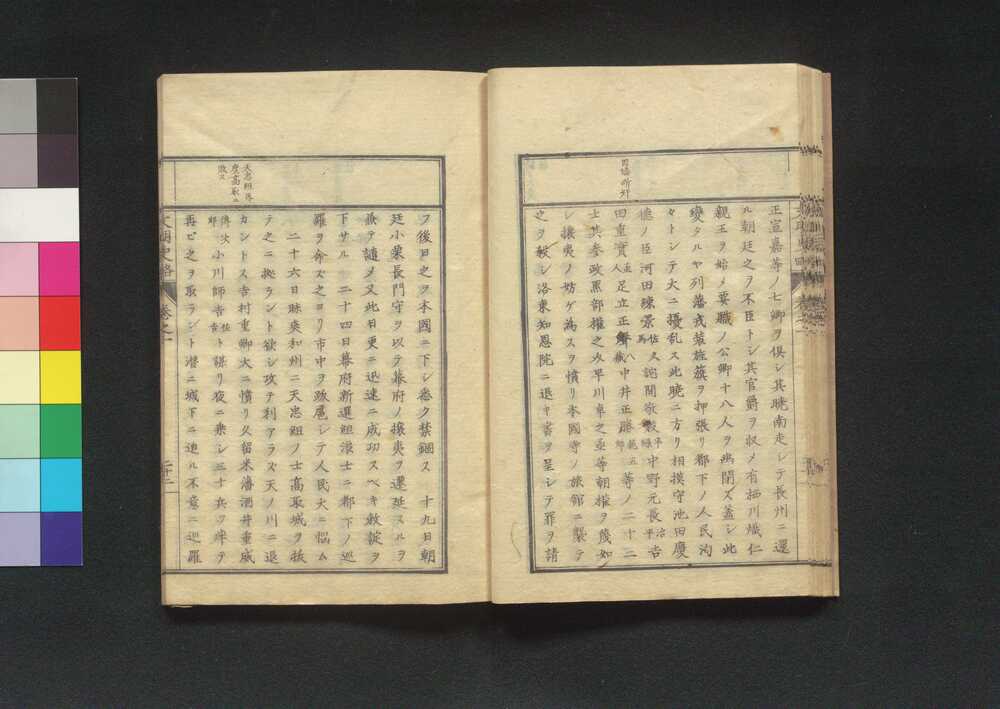 正宣嘉等ノ七卿ヲ倶シ其暁南走シテ長州ニ還
ル朝廷之ヲ不臣トシ其官爵ヲ収メ有栖川熾仁
親王ヲ始メ要職ノ公卿十八人ヲ幽閉ス蓋シ此
変タルヤ列藩戎装旌旗ヲ押張リ都下ノ人民洶
々トシテ大ニ擾乱ス此暁ニ方リ相摸守池田慶
徳ノ臣河田 景 佐久 詫間 中野元長 治平 吉
田重實 直人 足立正 八蔵 中井正勝 範五郎 等ノ二十二
士其参政黒部権之 早川卓之丞等朝権ヲ蔑如
シ攘夷ノ妨ゲ為スヲ憤リ本國寺ノ旅館ニ襲テ
之ヲ殺シ洛東知恩院ニ退キ書ヲ呈シテ罪ヲ請
天忠組再
度高取ニ
敗ス
フ後日之ヲ本國ニ下シ悉ク禁錮ス 十九日朝
廷小栗長門守ヲ以テ幕府ノ攘夷ヲ遷延スルヲ
譴メ又此日更ニ迅速ニ成功スベキ敕諚ヲ
下サル 二十四日幕府新選組浪士ニ都下ノ巡
羅ヲ命ズ之ヨリ市中ヲ跋扈シテ人民大ニ悩ム
二十六日昧爽和州ニ天忠組ノ士高取城ヲ抜
テ之ニ拠ラント欲シ攻テ利アラズ天ノ川ニ退
カントス吉村重卿大ニ憤リ久留米藩酒井重威
傳次郎 小川師 佐吉 ト謀リ夜ニ乗シ三十兵ヲ率テ
再ヒ之ヲ取ラント潜ニ城下ニ迫ル不意ニ巡羅
文明史略 巻之一 二十二